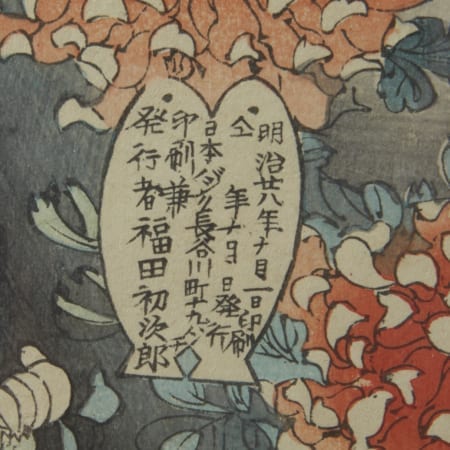 明治廿八年十月一日印刷
仝 年 日発行
日本バシク長谷川町十九バンチ
印刷兼
発行者福田初次郎